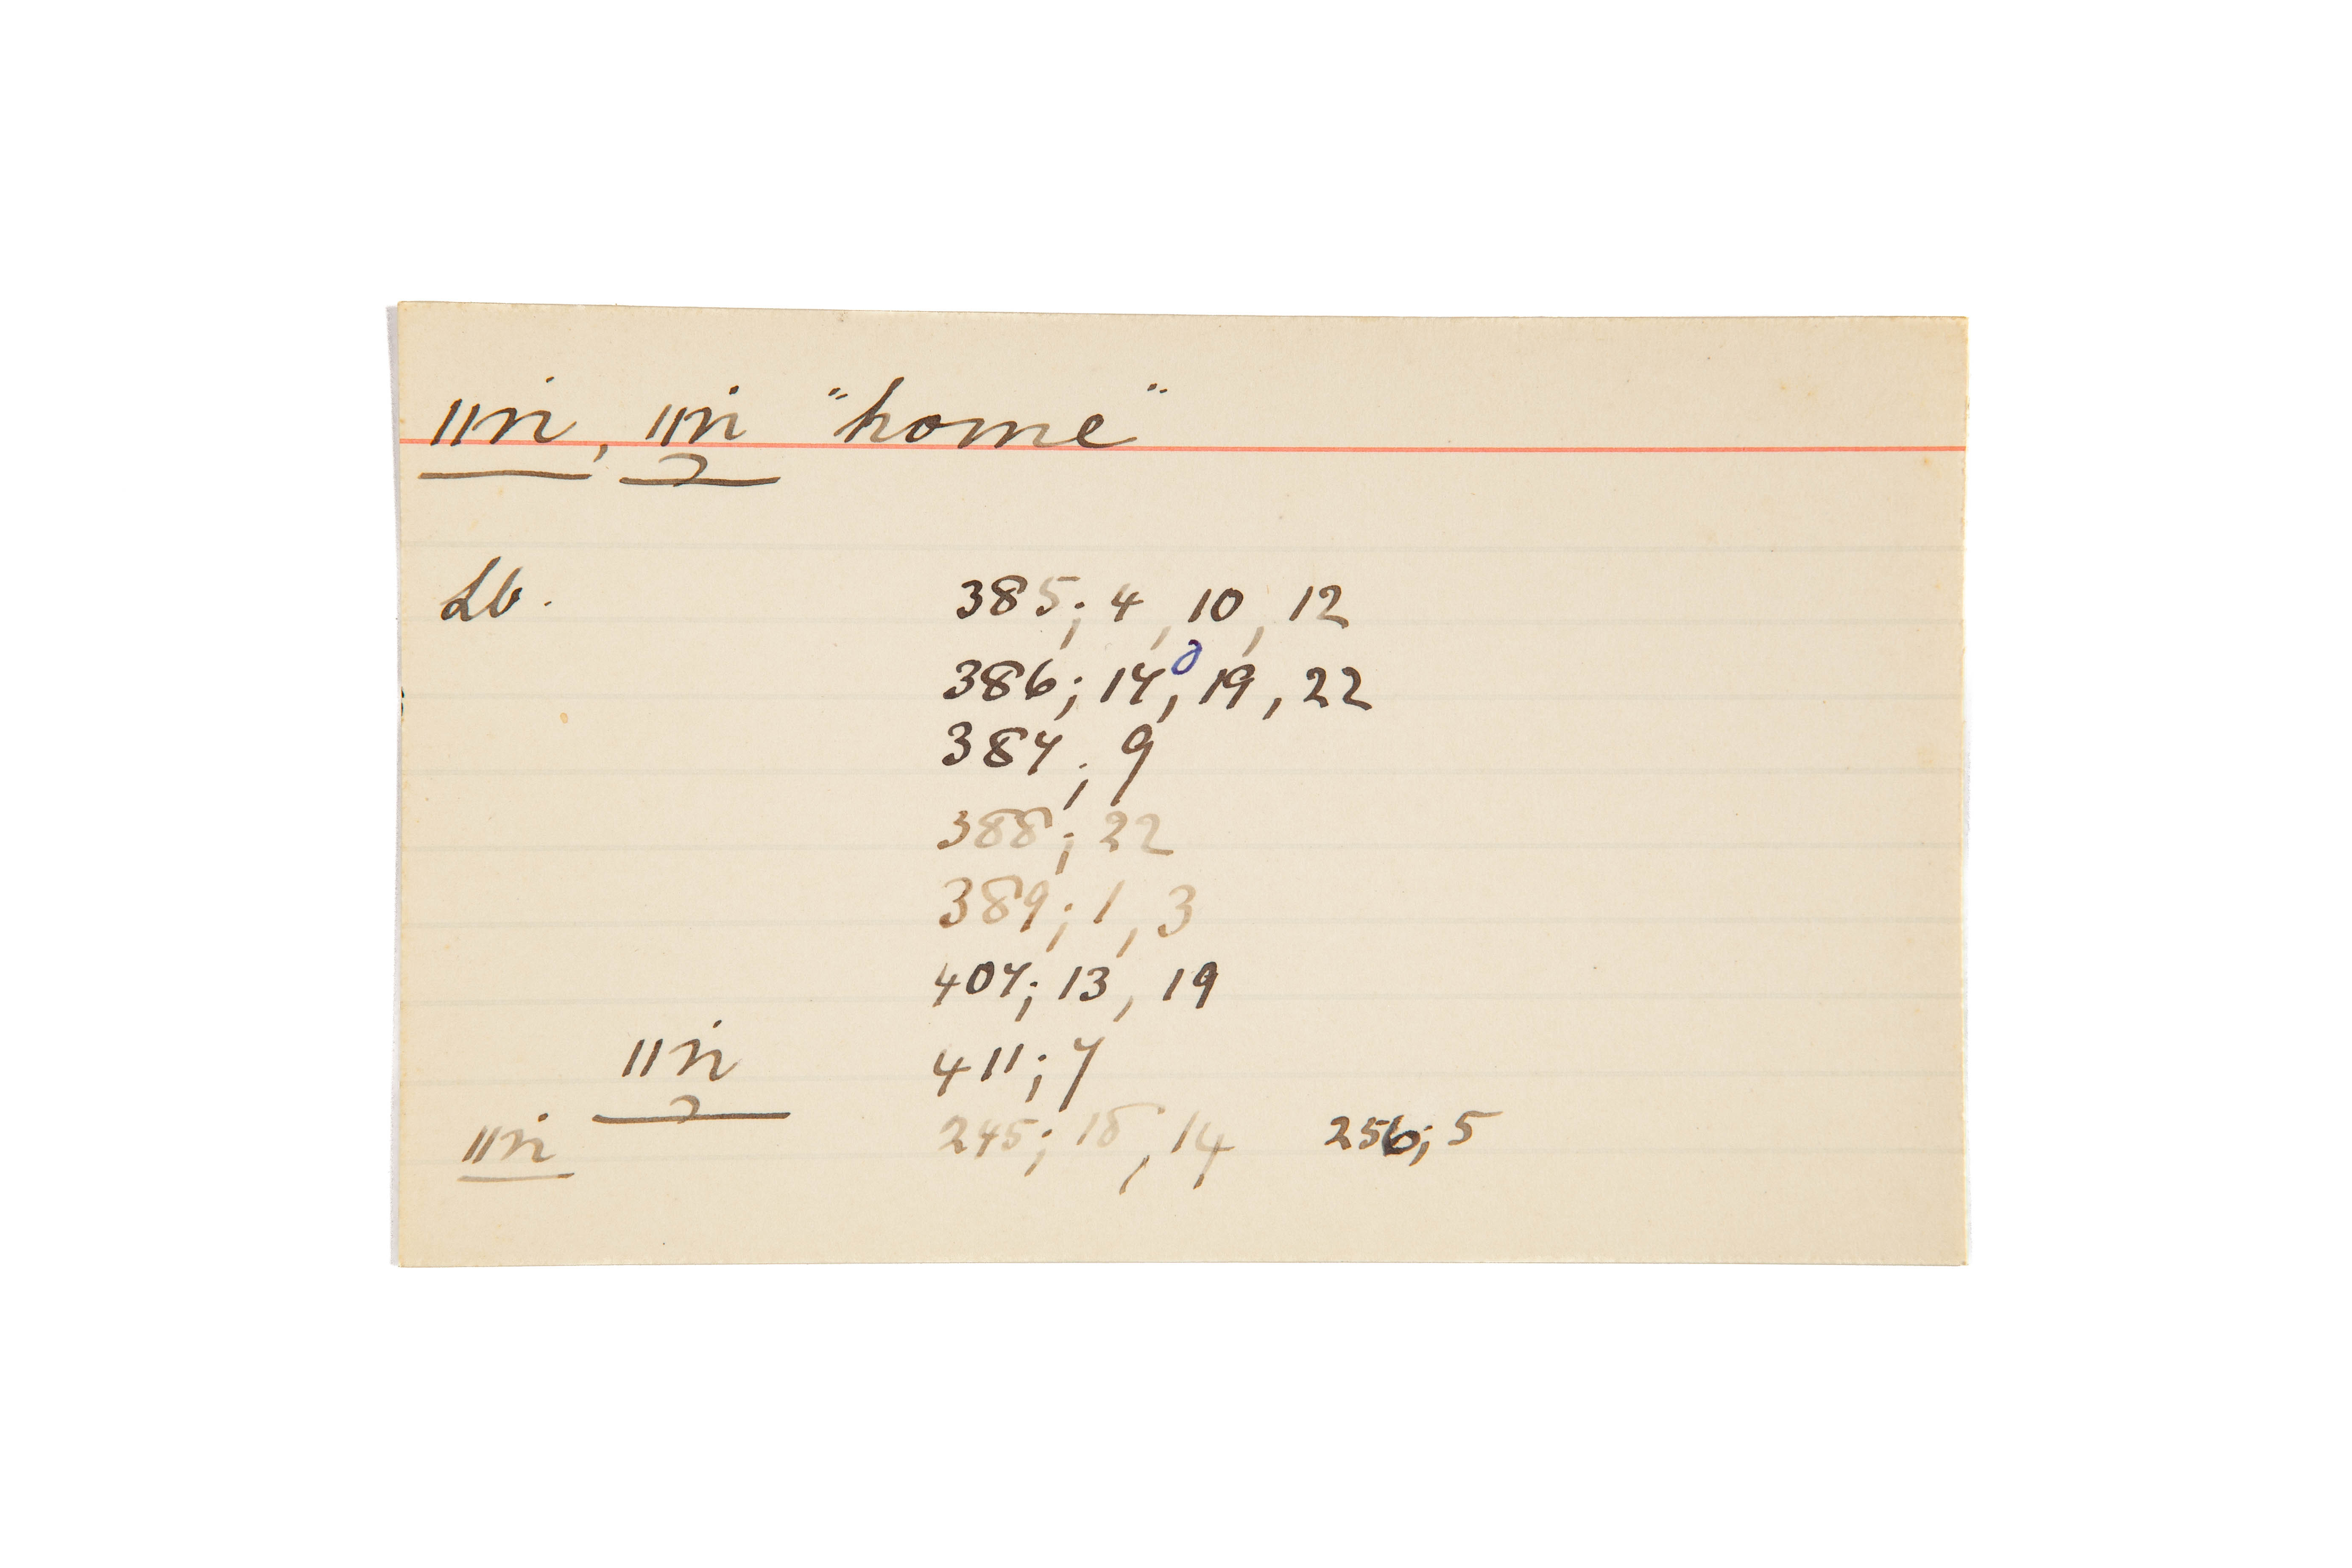 ǁni, ǁni "home"
Lb. 385; 4, 10, 12
386; 17, 19, 22
387; 9
388; 22
389; 1, 3
407; 13, 19
ǁni 411; 7
ǁni 245; 18, 14 256; 5